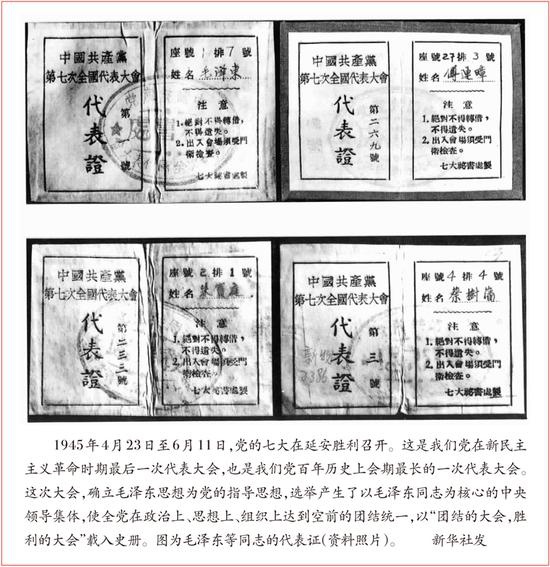 中國共産黨
第七次全國代表大會
代表證
第一號
座號1排7號
姓名毛澤東
注意
1.絕對不得轉借,
不得遺失。
2.出入會場須受門
衛檢查。
七大祕書處製
中國共産黨
第七次全國代表大會
代表證
第二六九號
座號27排3號
姓名傅連暲
注意
1.絕對不得轉借,
不得遺失。
2.出入會場須受門
衛檢查。
七大祕書處製
中國共産黨
第七次全國代表大會
代表證
第二三三號
座號2排1號
姓名
注意
1.絕對不得轉借,
不得遺失。
2.出入會場須受門
衛檢查。
七大祕書處製
中國共産黨
第七次全國代表大會
代表證
第三號
座號4排4號
姓名蔡樹藩
注意
1.絕對不得轉借,
不得遺失。
2.出入會場須受門
衛檢查。
七大祕書處製
1945年4月23日至6月11日,党的七大在延安胜利召开。这是我们党在新民主
主义革命时期最后一次代表大会,也是我们党百年历史上会期最长的一次代表大会。
这次大会,确立毛泽东思想为党的指导思想,选举产生了以毛泽东同志为核心的中央
领导集体,使全党在政治上、思想上、组织上达到空前的团结统一,以“团结的大会,胜
利的大会”载入史册。图为毛泽东等同志的代表证(资料照片)。 新华社发